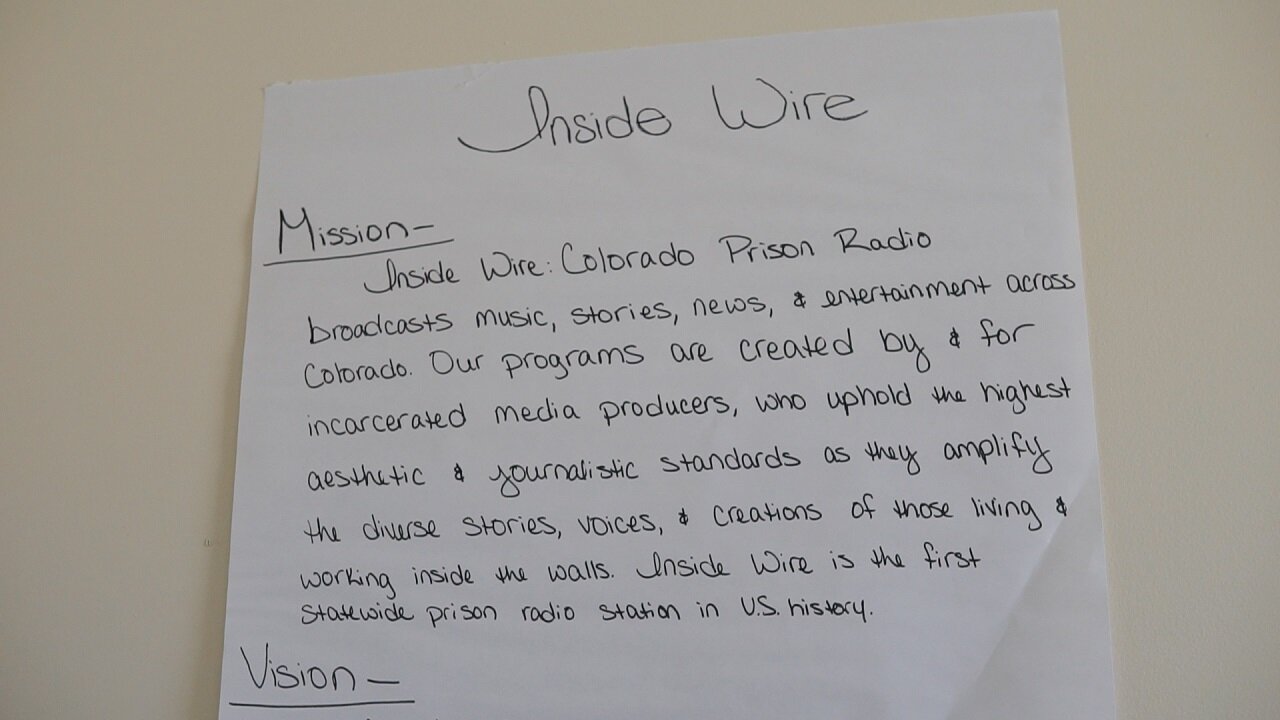 Inside Wire
Mission-
Inside Wire: Colorado Prison Radio
broadcasts music, stories, news, & entertainment across
Colorado. Our programs are created by & for
incarcerated media producers, who uphold the highest
aesthetic & journalistic standards as they amplify
the diverse stories, voices, & creations of those living &
working inside the walls. Inside Wire is the first
statewide prison radio station in U.S. history.
Vision-